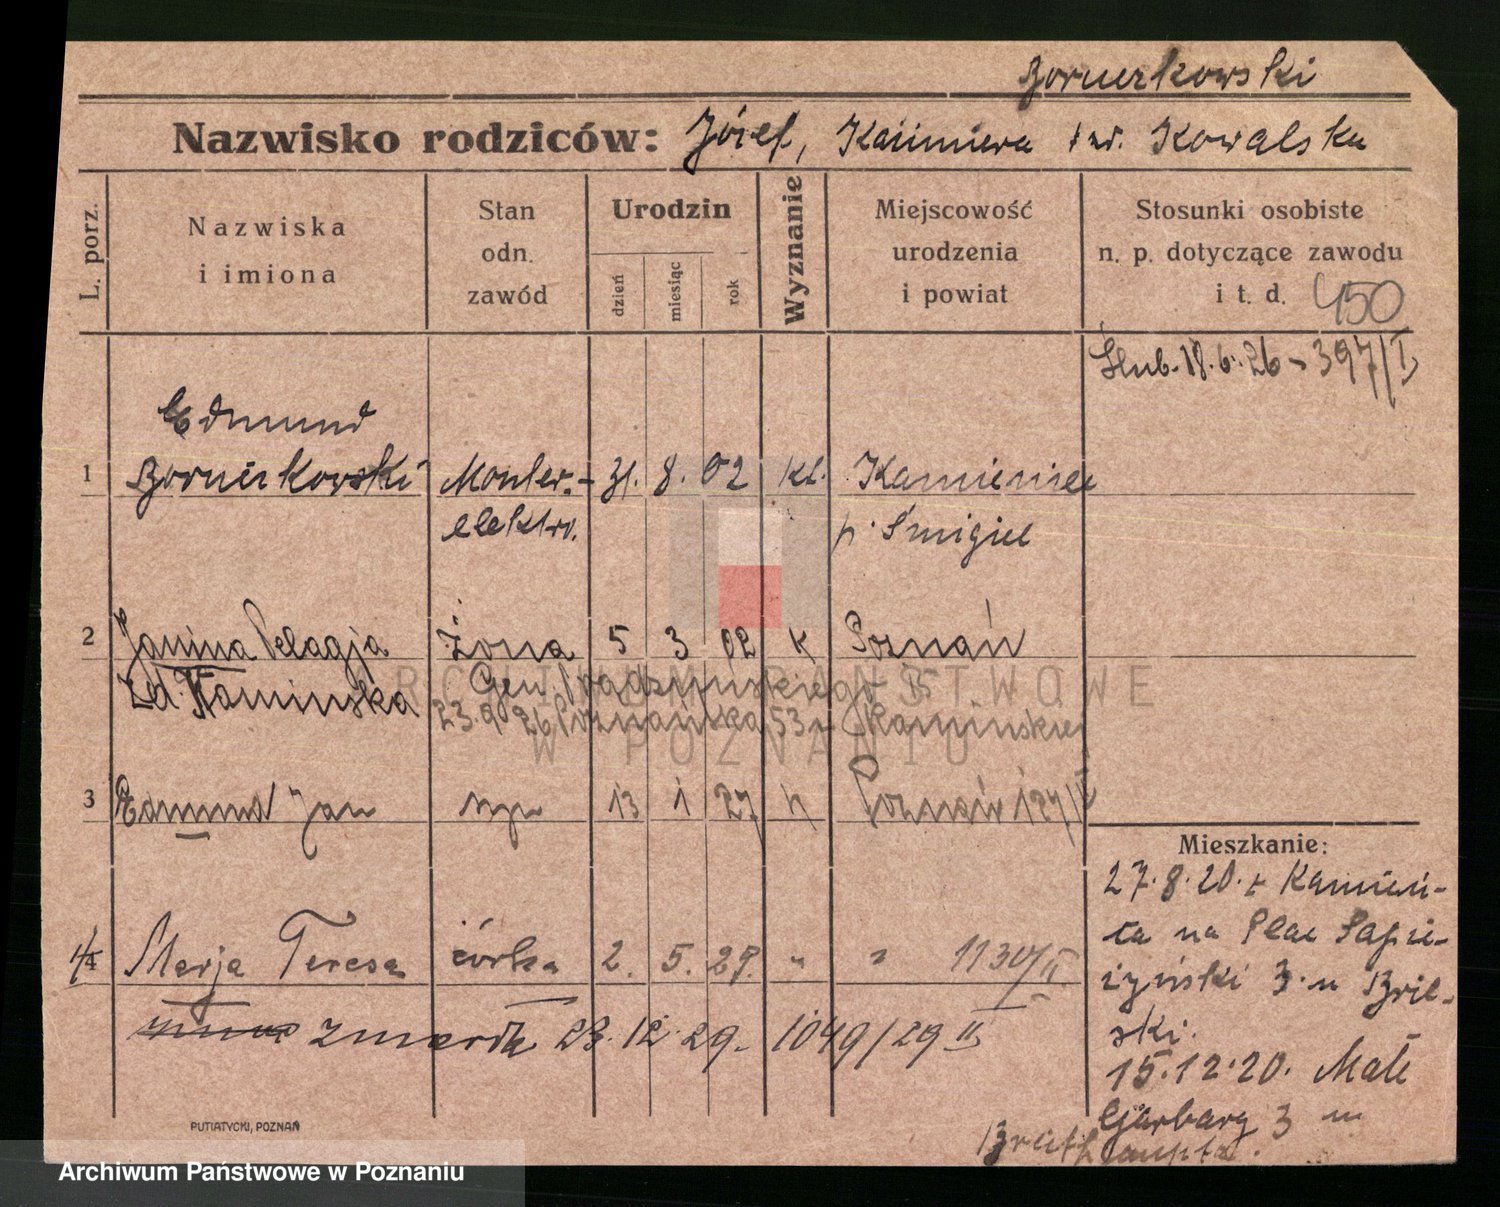 Borucrkowski
Nazwisko rodziców: Józef, Kazimiera Kowalska
L. porz.
Nazwiska
i imiona
Stan
odn.
zawód
Urodzin
dzień
miesiąc
rok
Wyznanie
Miejscowość
urodzenia
i powiat
Stosunki osobiste
n. p. dotyczące zawodu
i t. d. 450
Ślub. 18.6.26 - 397/I
Edmund
1 Monter- 31. 8. 02 kt. Kamieniec
elektro. p. Śmigiel
2 Janina Pelagja żona 5 3 02 k Poznań
zd. Kamińska
23.9.26 Poznańska 53 Kamińskiej
3 Edmund Jan syn 13 1 27 k Poznań 127/II
Mieszkanie:
27.8.20. z Kamień-
ca na Plac Sapie-
żyński 3. u Bril-
ski.
4 Marja Teresa córka 2. 5. 29. " " 1130/II
zmarła 23. 12. 29. 1049/29 II
15.12.20. Małe
Garbary 3 u
PUTIATYCKI, POZNAŃ
Archiwum Państwowe w Poznaniu
ARCHIWUM PAŃSTWOWE
W POZNANIU